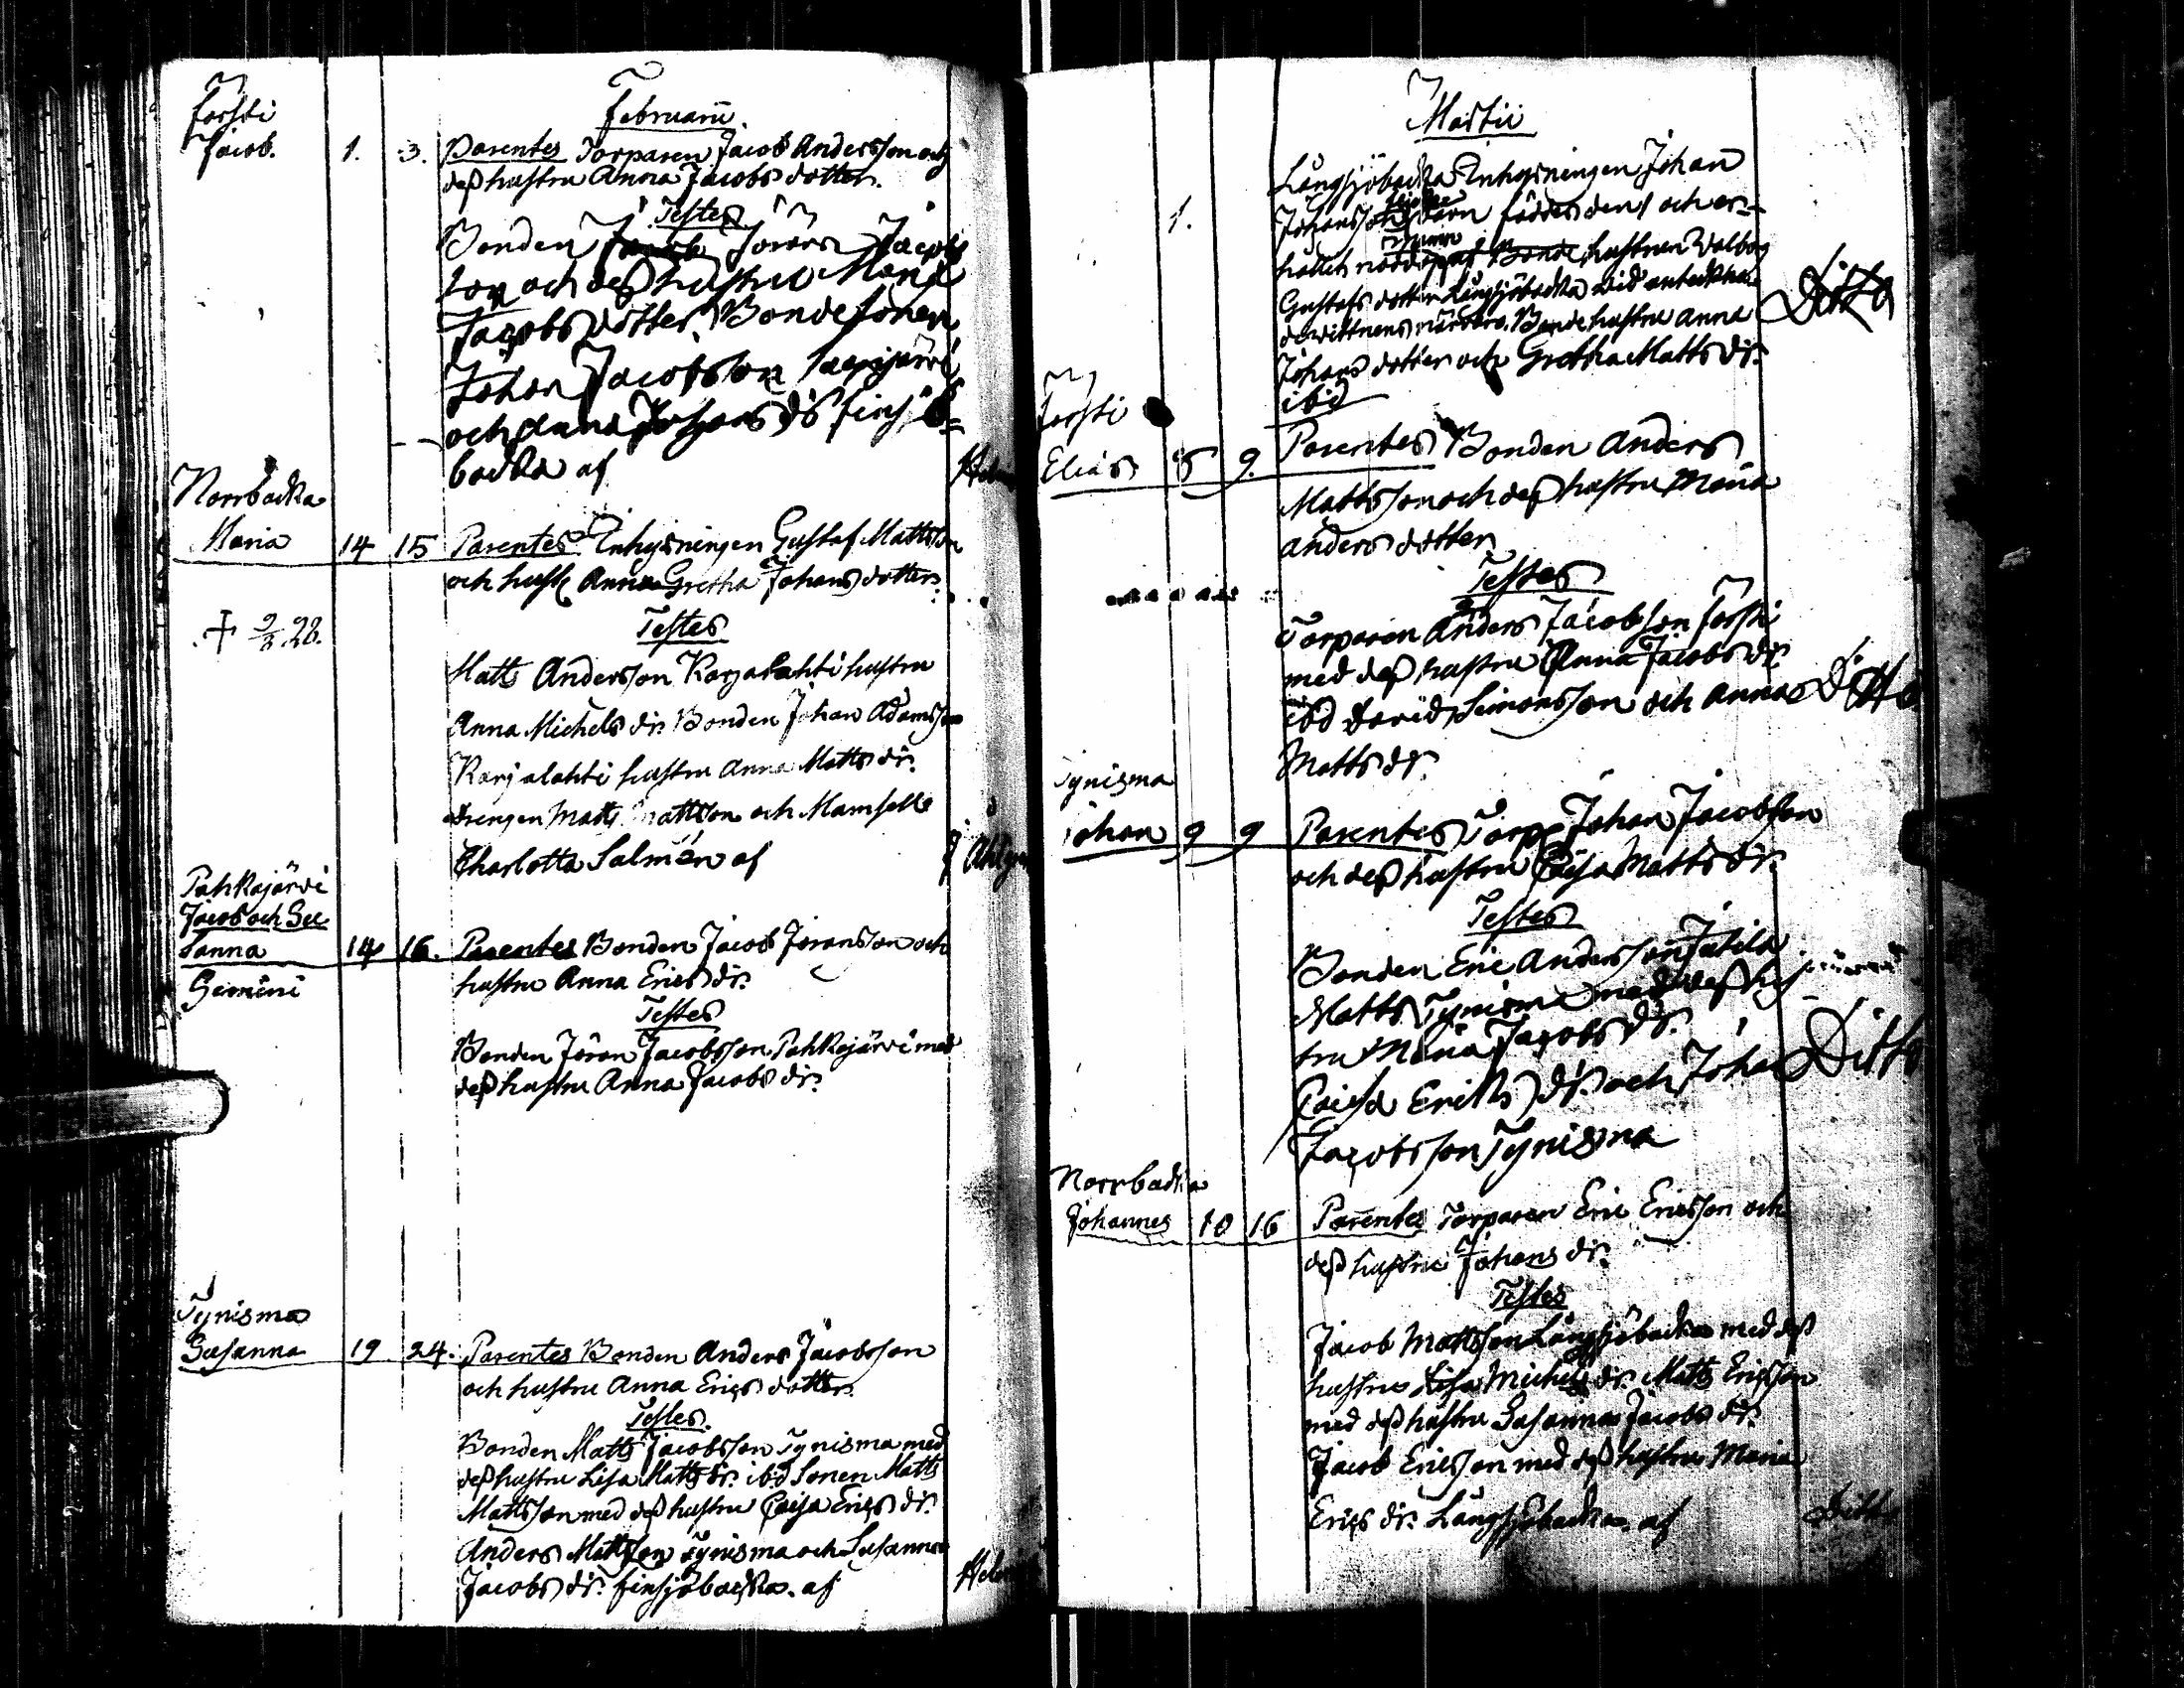 Februarii.
Forsti
Jacob. 1. 3. Parentes Torparen Jacob Andersson och
dess hustru Anna Jacobs dotter.
Testes
Bonden Jacob Jöran Jacobs
son och dess hustru Maria
Jacobs dotter. Bonde sonen
Johan Jacobsson
och Anna Johans dr finsjö=
backa af
Norrbacka
Maria 14 15 Parentes Inhysningen Gustaf Mattsson
och hust Anna Gretha Johans dotter.
Testes
+ 9/3 28.
Matts Andersson Karjalahti hustru
Anna Michels dr. Bonden Johan Adamsson
Karjalahti hustru Anna Matts dr.
drengen Matts Mattson och Mamsell
Charlotta Salmén af
Pahkajärvi
Jacob och Su
sanna 14 16. Parentes Bonden Jacob Joransson och
Gemini hustru Anna Erics dr.
Testes
Bonden Jöran Jacobsson Pahkajärvi med
dess hustru Anna Jacobs dr.
Tynisma
Susanna 19 24. Parentes Bonden Anders Jacobsson
och hustru Anna Erics dotter.
Testes.
Bonden Matts Jacobsson Tynisma med
dess hustru Lisa Matts dr. ibd Sonen Matts
Mattsson med dess hustru Caisa Erics dr.
Anders Mattsson Tynisma och Susanna
Jacobs dr. finsjöbacka. af
Martii
Långsjöbacka Inhysningen Johan
1. Johanssons barn föddes den 1 och er=
höllt nöddop af Bonde hustrun Valbog
Gustafs dotter Långsjöbacka vid anteckna
de vittnens närvaro. Bonde hustru Anna Ditto
Johans dotter och Gretha Matts dr.
ibid
Forsti
Elias 5 9. Parentes Bonden Anders
Mattsson och dess hustru Maria
Anders dotter
Testes
Torparen Anders Jacobsson Forsti
med dess hustru Anna Jacobs dr.
ibd David Simonsson och Anna Ditto
Matts dr.
Tynisma
Johan 9 9 Parentes Torp Johan Jacobsson
och dess hustru Caisa Matts dr.
Testes
Bonden Eric Andersson
Matts Tynisma med dess hus
tru Maria Jacobs dr.
Caisa Eriks dr. och Johan Ditto
Jacobsson Tynisma
Norrbacka
Johannes 10 16 Parentes Torparen Eric Ericsson och
dess hustru Johans dr.
Testes
Jacob Mattsson Långsjöbacka med dess
hustru Lisa Michels dr. Matts Ericsson
med dess hustru Susanna Jacobs dr.
Jacob Ericsson med dess hustru Maria
Erics dr. Långsjöbacka. af Ditto